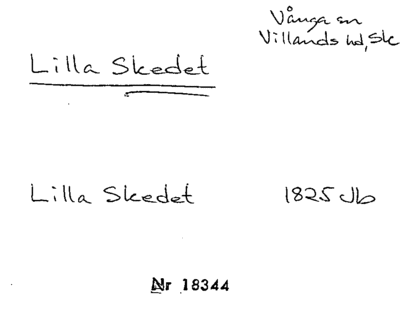 Vånga sn
Villands hd, Sk
Lilla Skedet
Lilla Skedet 1825 Jb
Nr 18344